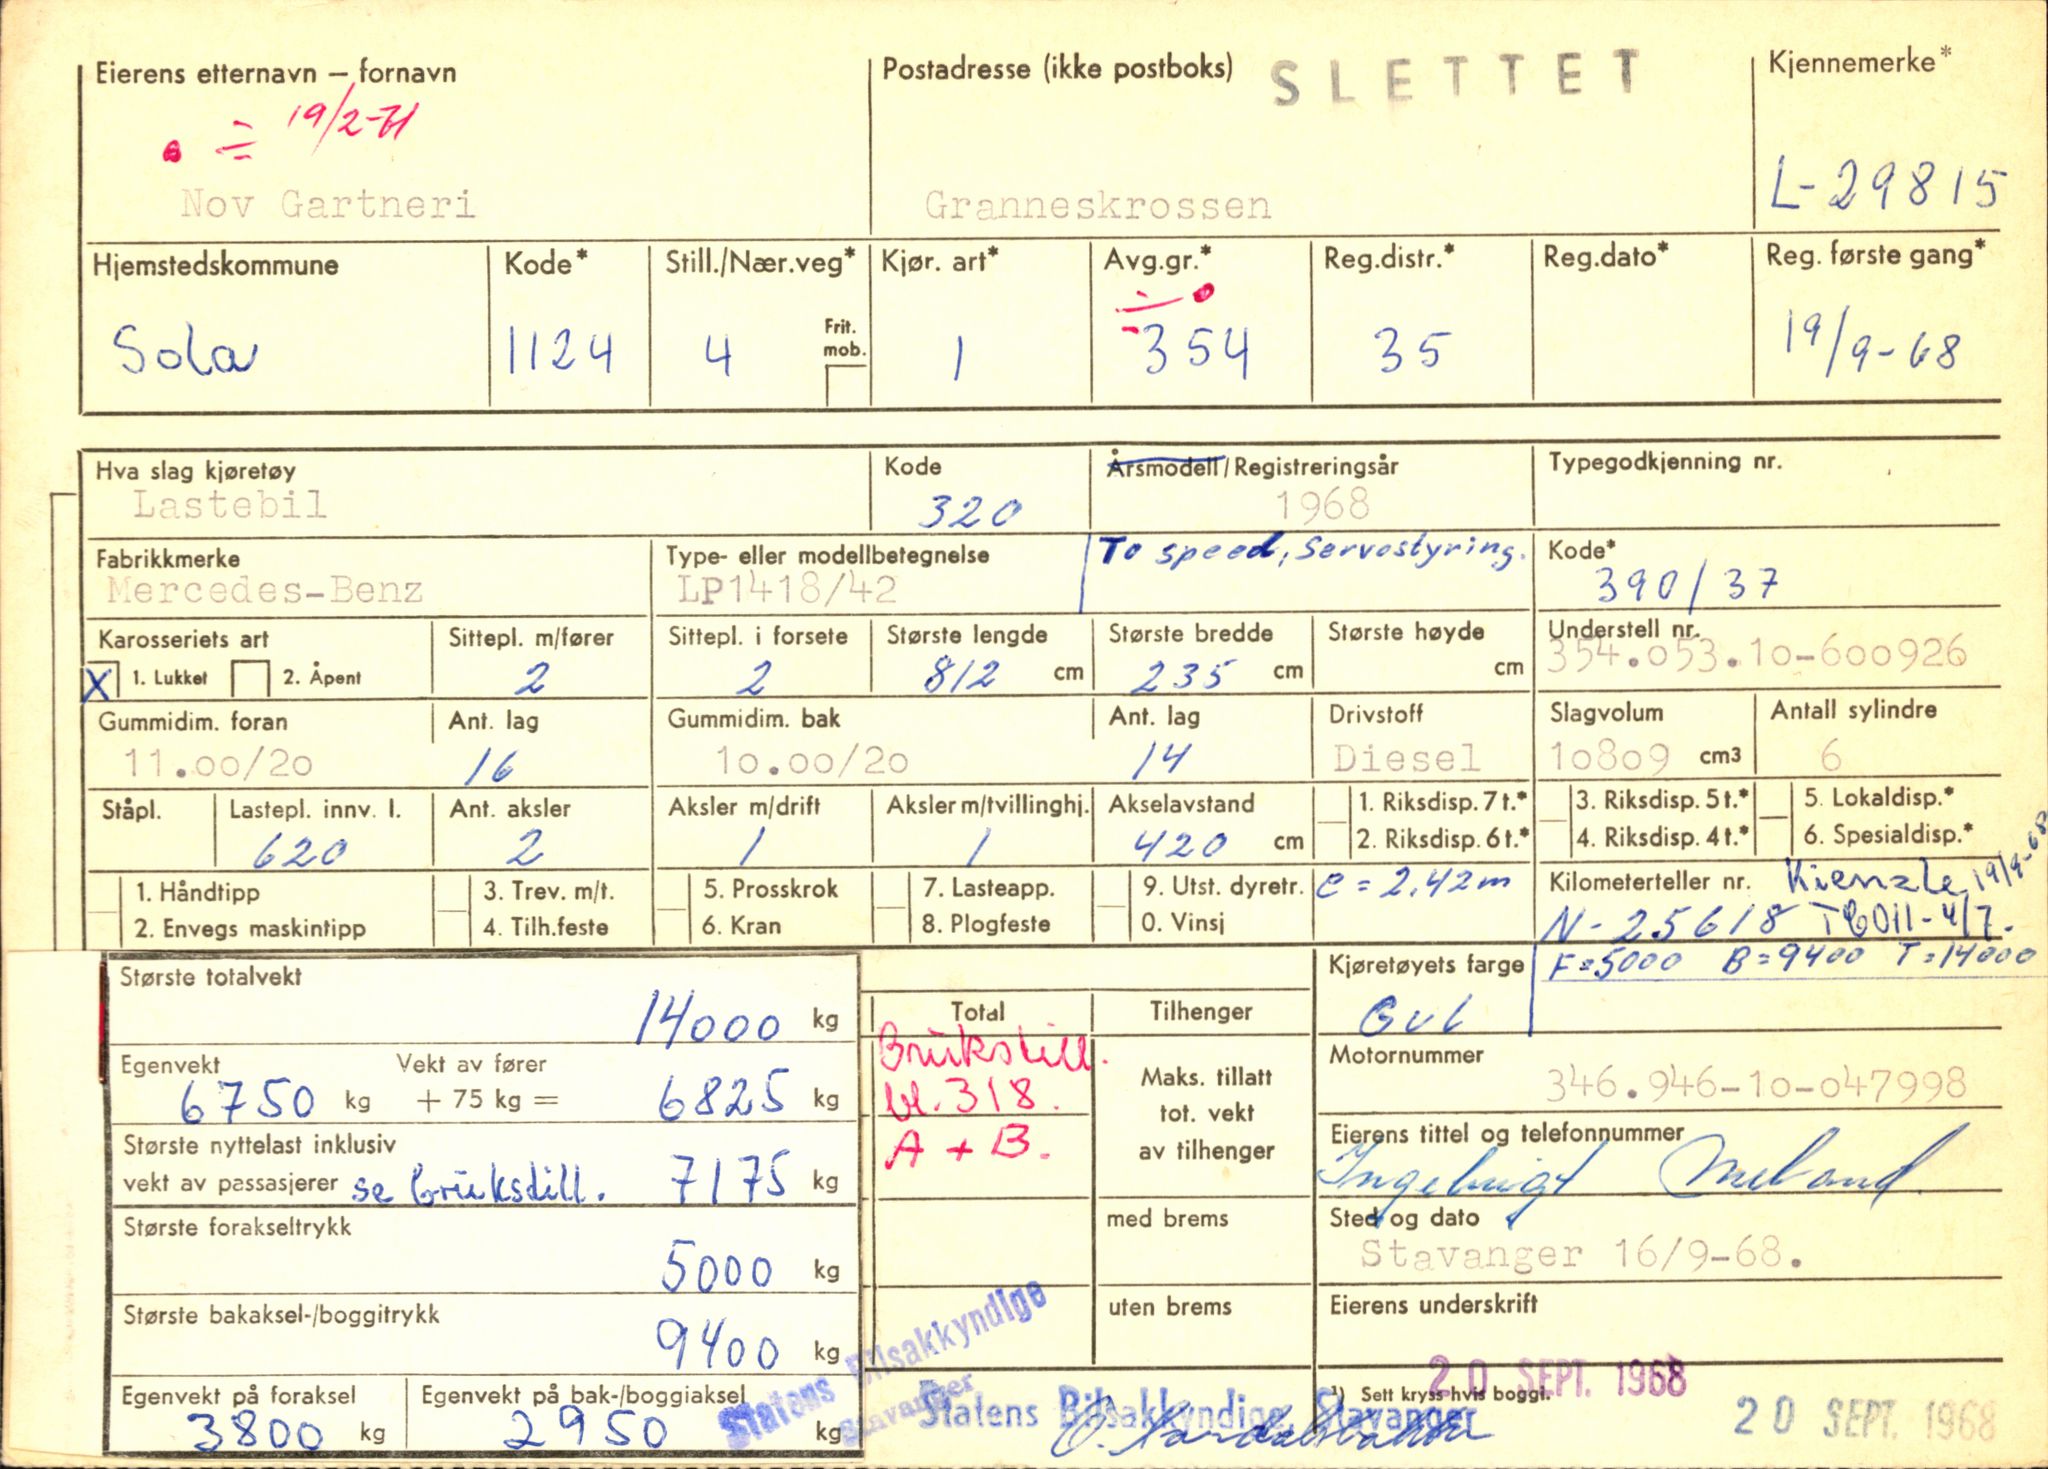 Eierens etternavn – fornavn
Postadresse (ikke postboks)
SLETTET
Kjennemerke*
÷ 19/2-71
Nov Gartneri
Granneskrossen
L-29815
Hjemstedskommune
Kode*
Still./Nær.veg*
Kjør. art*
Avg.gr.*
Reg.distr.*
Reg.dato*
Reg. første gang*
Sola
1124
4
Frit. mob.
1
÷
354
35
19/9-68
Hva slag kjøretøy
Kode
Årsmodell/Registreringsår
Typegodkjenning nr.
Lastebil
320
1968
Fabrikkmerke
Type- eller modellbetegnelse
To speed, Servostyring.
Kode*
Mercedes-Benz
LP1418/42
390/37
Karosseriets art
Sittepl. m/fører
Sittepl. i forsete
Største lengde
Største bredde
Største høyde
Understell nr.
X 1. Lukket 2. Åpent
2
2
812 cm
235 cm
cm
354.053.10-600926
Gummidim. foran
Ant. lag
Gummidim. bak
Ant. lag
Drivstoff
Slagvolum
Antall sylindre
11.00/20
16
10.00/20
14
Diesel
10809 cm3
6
Ståpl.
Lastepl. innv. l.
Ant. aksler
Aksler m/drift
Aksler m/tvillinghj.
Akselavstand
1. Riksdisp. 7 t.*
3. Riksdisp. 5 t.*
5. Lokaldisp.*
620
2
1
1
420 cm
2. Riksdisp. 6 t.*
4. Riksdisp. 4 t.*
6. Spesialdisp.*
1. Håndtipp
3. Trev. m/t.
5. Prosskrok
7. Lasteapp.
9. Utst. dyretr.
e = 2.42m
Kilometerteller nr.
Kienzle 19/9-68
2. Envegs maskintipp
4. Tilh.feste
6. Kran
8. Plogfeste
0. Vinsj
N-25618 TCO11-4/7.
Største totalvekt
14000 kg
Kjøretøyets farge
F=5000 B=9400 T=14000
Total
Tilhenger
Gul
Egenvekt
Vekt av fører
6750 kg + 75 kg = 6825 kg
Brukstill.
bl. 318.
A + B.
Maks. tillatt
tot. vekt
av tilhenger
Motornummer
346.946-10-047998
Største nyttelast inklusiv
vekt av passasjerer se brukstill. 7175 kg
Eierens tittel og telefonnummer
Ingebrigt Meland
Største forakseltrykk
5000 kg
med brems
Sted og dato
Stavanger 16/9-68.
Største bakaksel-/boggitrykk
9400 kg
uten brems
Eierens underskrift
Egenvekt på foraksel
3800 kg
Egenvekt på bak-/boggiaksel
2950 kg
Statens Bilsakkyndige
Stavanger
20 SEPT. 1968
¹) Sett kryss hvis boggi.
Statens Bilsakkyndige, Stavanger
20 SEPT. 1968